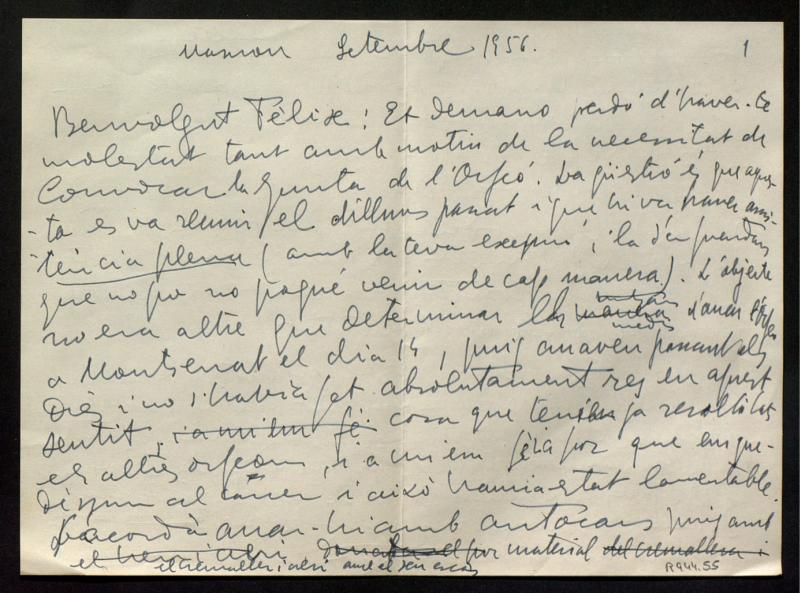 Setembre 1956. 1
Benvolgut Fèlix: Et demano perdó d'haver-te
molestat tant amb motiu de la necessitat de
Convocar la Junta de l'Orfeó. La qüestió és que aques-
-ta es va reunir el dilluns passat i que hi va haver assis-
tència plena (amb la teva excepció, i la d'en Guardans
que no pogué venir de cap manera). L'objecte
no era altre que determinar els mitjans d'anar l'Orfeó
a Montserrat el dia 14, puig anaven passant els
Dies i no s'havia fet absolutament res en aquest
sentit, cosa que tenien ja resolt los
els altres orfeons, i a mi em feia por que ens que-
déssim al carrer i això hauria estat lamentable.
S'acordà anar-hi amb autocars puig amb
el cremallera i amb el seu escàs
por material del cremallera i
R944.55